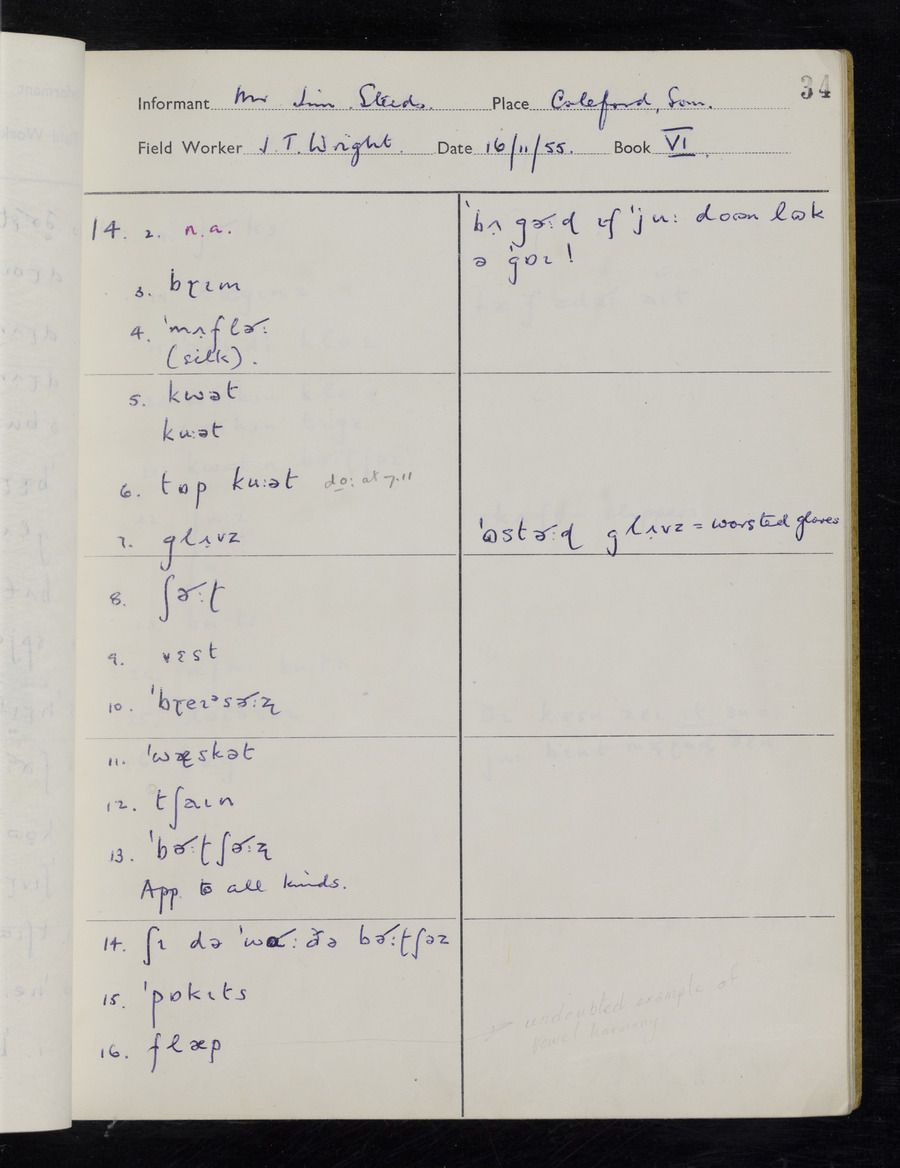 34
Informant Mr Jim Sleeds. Place Coleford, Som.
Field Worker J. T. Wright. Date 16/11/55. Book VI.
14. 2. n.a.
ˈbʌ gɚːɖ ɪf ˈjuː doən lɷk
ə gɒɪ!
3. bɽɪm
4. ˈmʌflɚː
(silk).
5. kwət
kuːət
6. tɒp kuːət do: at 7.11
7. glʌvz
ˈɷstɚːɖ glʌvz = worsted gloves
8. ʃɚːʈ
9. vɛst
10. ˈbɽeɪᵊsɚːʐ
11. ˈwæskət
12. tʃaɪn
13. ˈbɚːtʃɚːʐ
App. to all kinds.
14. ʃɪ də ˈwɑ˞ː ðə bɚːtʃəz
15. ˈpɒkɪts
16. flæp
undoubted example of
vowel harmony